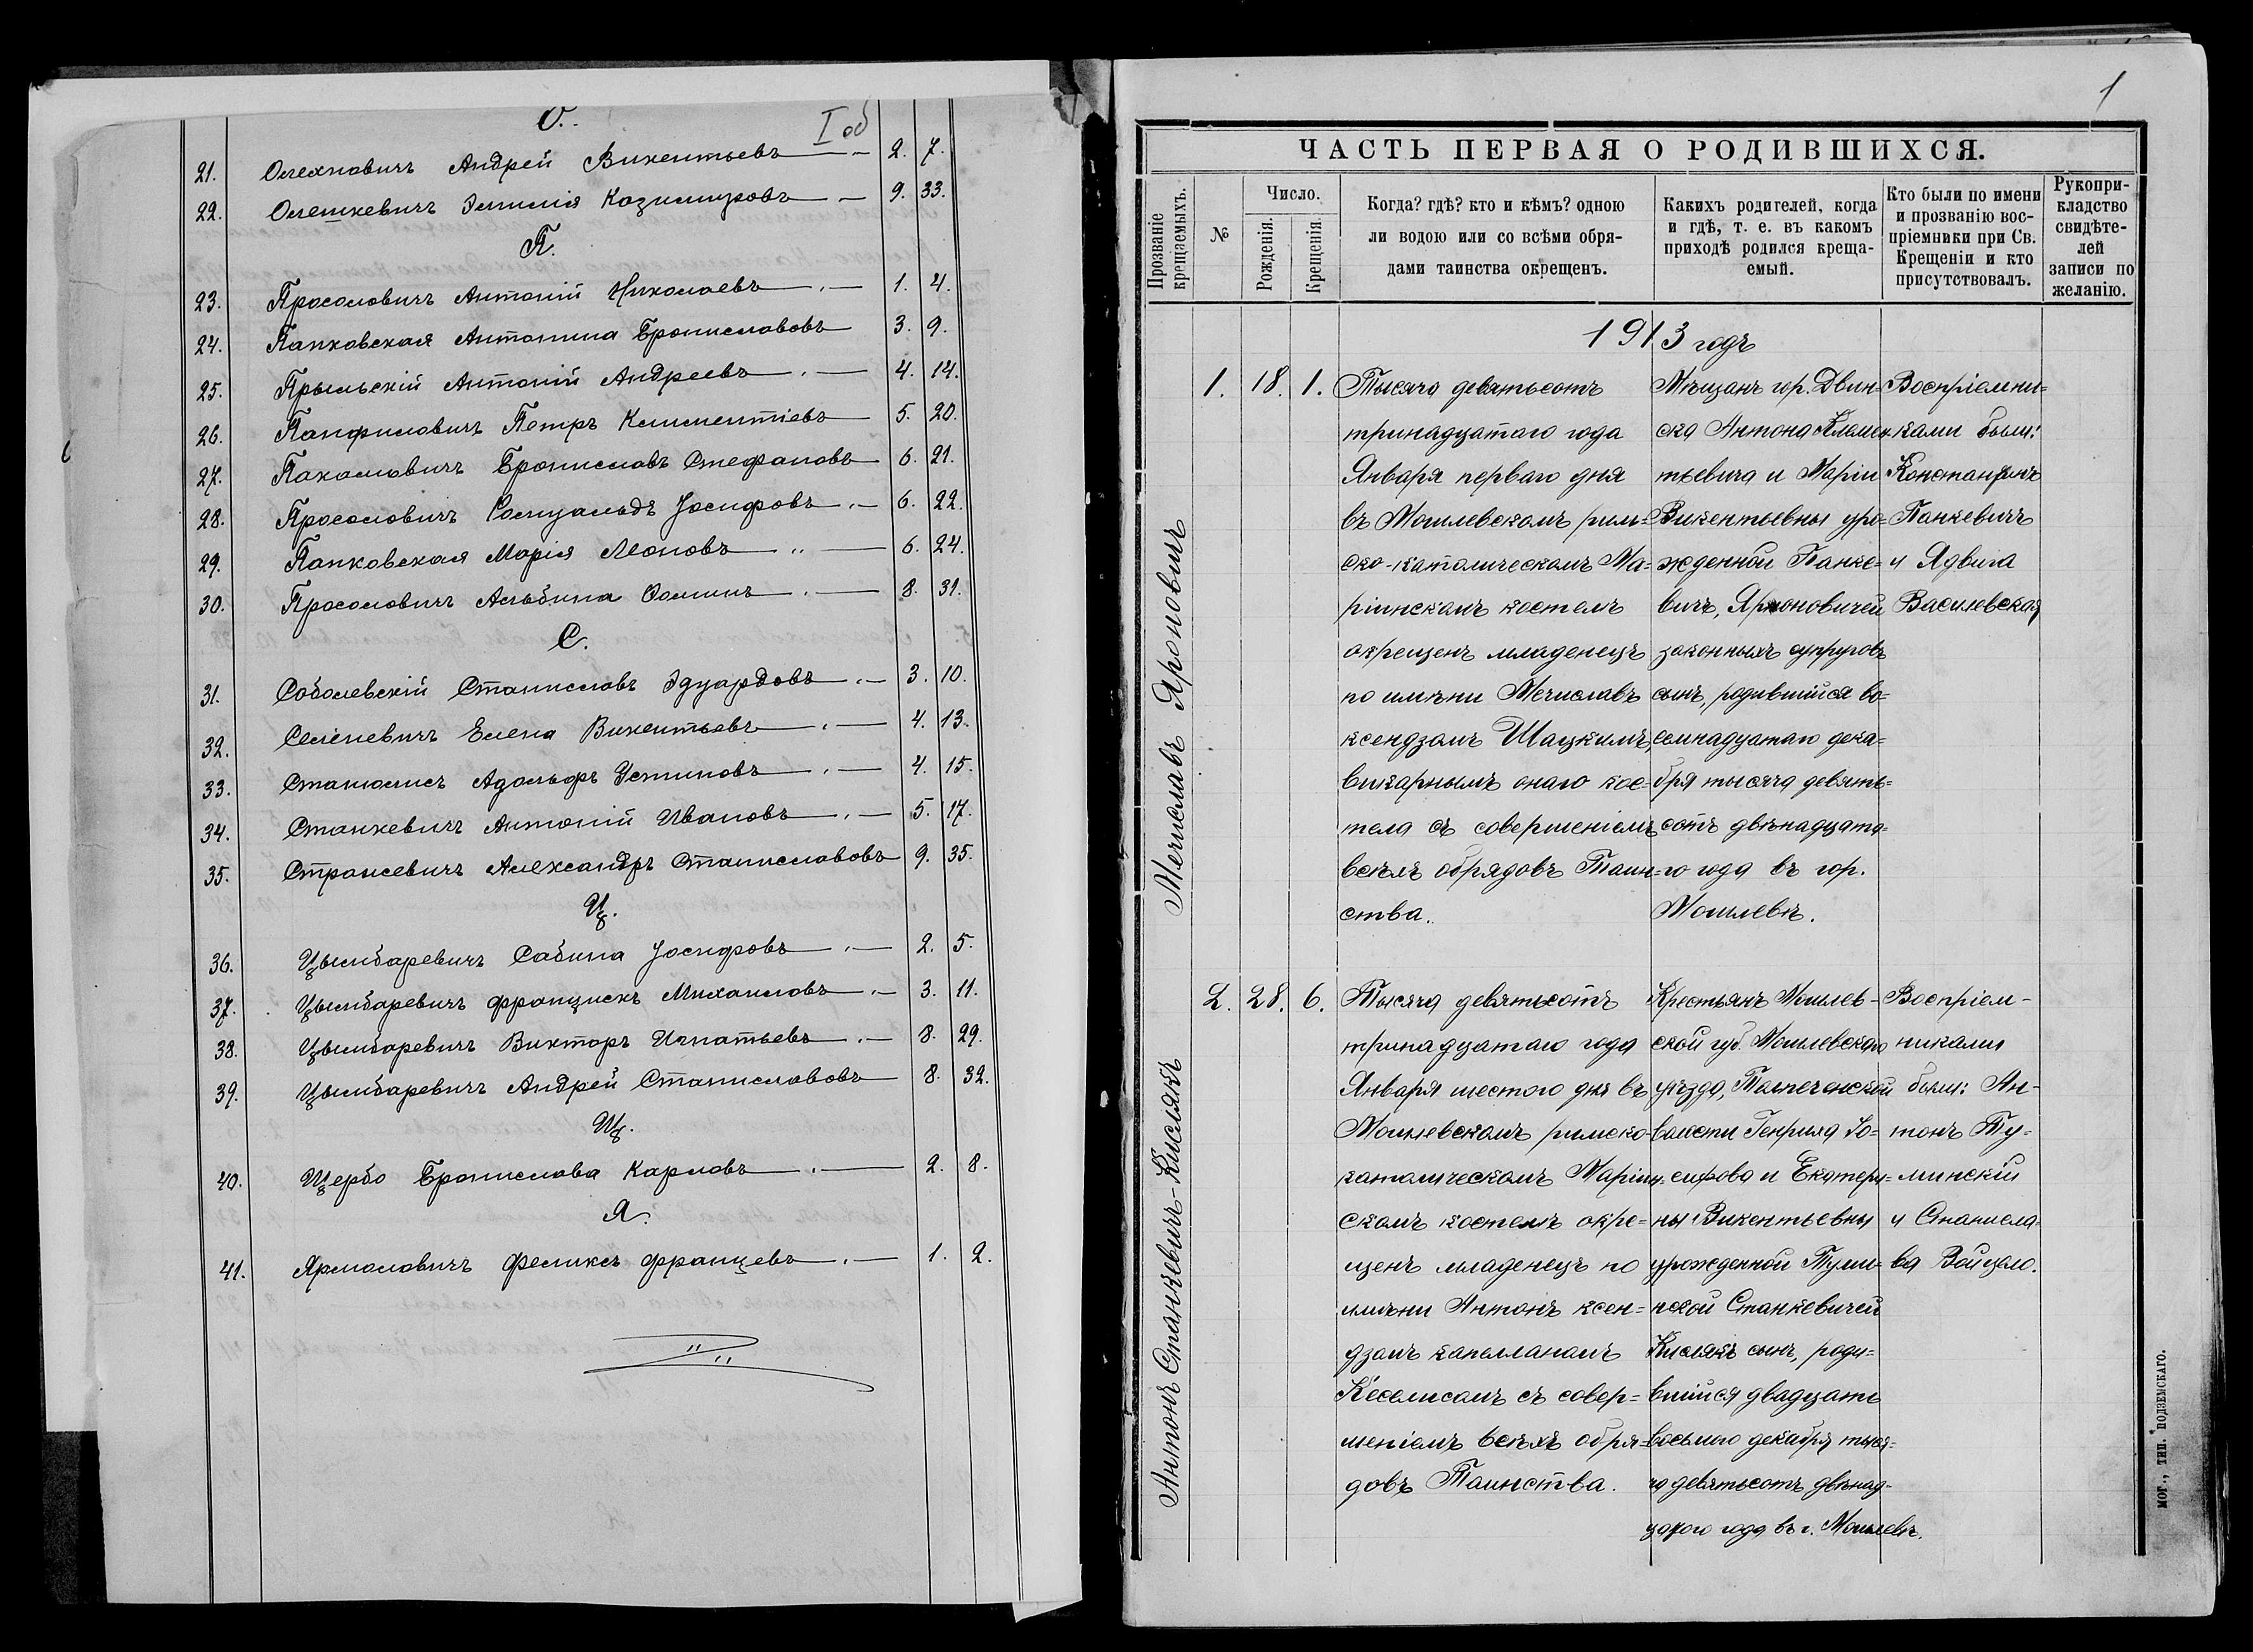 О.
I об
21. Олехновичъ Андрей Викентьевъ — 2. 7.
22. Олешкевичъ Эмилія Казимировъ — 9. 33.
П.
23. Просоловичъ Антоній Николаевъ — 1. 4.
24. Папковская Антонина Брониславовъ 3. 9.
25. Прыльскій Антоній Андреевъ — 4. 14.
26. Панфиловичъ Петръ Климентіевъ 5. 20.
27. Пахаловичъ Брониславъ Стефановъ 6. 21.
28. Просоловичъ Ромуальдъ Іосифовъ — 6. 22.
29. Папковская Марія Леоновъ — 6. 24.
30. Просоловичъ Альбина Фоминъ — 8. 31.
С.
31. Соболевскій Станиславъ Эдуардовъ — 3. 10.
32. Селеневичъ Елена Викентьевъ — 4. 13.
33. Станюлисъ Адольфъ Устиновъ — 4. 15.
34. Станкевичъ Антоній Ивановъ — 5. 17.
35. Александръ Станиславовъ 9. 35.
Ц.
36. Цымбаревичъ Сабина Іосифовъ — 2. 5.
37. Цымбаревичъ Францискъ Михаиловъ — 3. 11.
38. Цымбаревичъ Викторъ Игнатьевъ — 8. 29.
39. Цымбаревичъ Андрей Станиславовъ 8. 32.
Щ.
40. Щербо Бронислава Карловъ — 2. 8.
Я.
41. Ярмоловичъ Феликсъ Францевъ — 1. 2.
1
ЧАСТЬ ПЕРВАЯ О РОДИВШИХСЯ.
Прозваніе
крещаемыхъ.
№
Число.
Рожденія.
Крещенія.
Когда? гдѣ? кто и кѣмъ? одною
ли водою или со всѣми обря-
дами таинства окрещенъ.
Какихъ родителей, когда
и гдѣ, т. е. въ какомъ
приходѣ родился креща-
емый.
Кто были по имени
и прозванію вос-
пріемники при Св.
Крещеніи и кто
присутствовалъ.
Рукопри-
кладство
свидѣте-
лей
записи по
желанію.
1913 годъ
Мечиславъ Яроновичъ
1. 18. 1.
Тысяча девятьсотъ
тринадцатаго года
Января перваго дня
въ Могилевскомъ рим-
ско-католическомъ Ма-
ріинскомъ костелѣ
окрещенъ младенецъ
по имени Мечиславъ
ксендзомъ Шацкимъ,
викарнымъ онаго кос-
тела съ совершеніемъ
всѣхъ обрядовъ Таин-
ства.
Мѣщанъ гор. Двин-
ска Антона Клемен-
тьевича и Маріи
Викентьевны уро-
жденной Панке-
вичъ, Яроновичей
законныхъ супруговъ
сынъ, родившійся во-
семнадцатаго дека-
бря тысяча девять-
сотъ двѣнадцата-
го года въ гор.
Могилевѣ.
Воспріемни-
ками были:
Константинъ
Панкевичъ
и Ядвига
Василевская
Антонъ Станкевичъ-Кислякъ
2. 28. 6.
Тысяча девятьсотъ
тринадцатаго года
Января шестого дня въ
Могилевскомъ римско-
католическомъ Маріин-
скомъ костелѣ окре-
щенъ младенецъ по
имени Антонъ ксен-
дзомъ капелланомъ
съ совер-
шеніемъ всѣхъ обря-
довъ Таинства.
Крестьянъ Могилев-
ской губ. Могилевскаго
уѣзда,
волости Генриха Іо-
сифова и Екатери-
ны Викентьевны
урожденной Туми-
нской Станкевичей
Кислякъ сынъ, роди-
вшійся двадцать
восьмого декабря тыся-
ча девятьсотъ двѣнад-
цатого года въ г. Могилевѣ.
Воспріем-
никами
были: Ан-
тонъ Ту-
минскій
и Станисла-
ва Войцело.
МОГ., ТИП. ПОДЗЕМСКАГО.